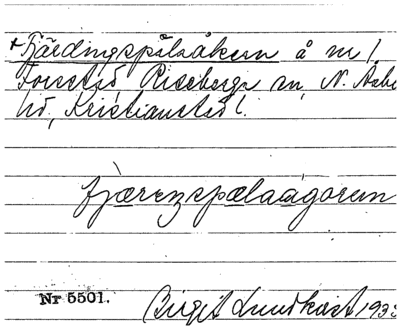 + Fjärdingspålsåkern å nr 1
Forestad Riseberga sn, N. Åsbo
hd, Kristianstad l.
fjæreŋspælaågoren
Nr 5501.
Birgit Lundkvist 193